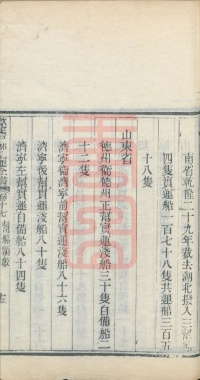 南省乾隆二十九年裁去湖北撥入三
四隻實運船一百七十八隻共運船三百五
十八隻
山東省
德州衛德州正幫實運淺船三十隻自備船二
十二隻
濟寧衛濟寧前幫實運淺船八十六隻
濟寧後幫實運淺船八十隻
濟寧左幫實運自備船八十四隻